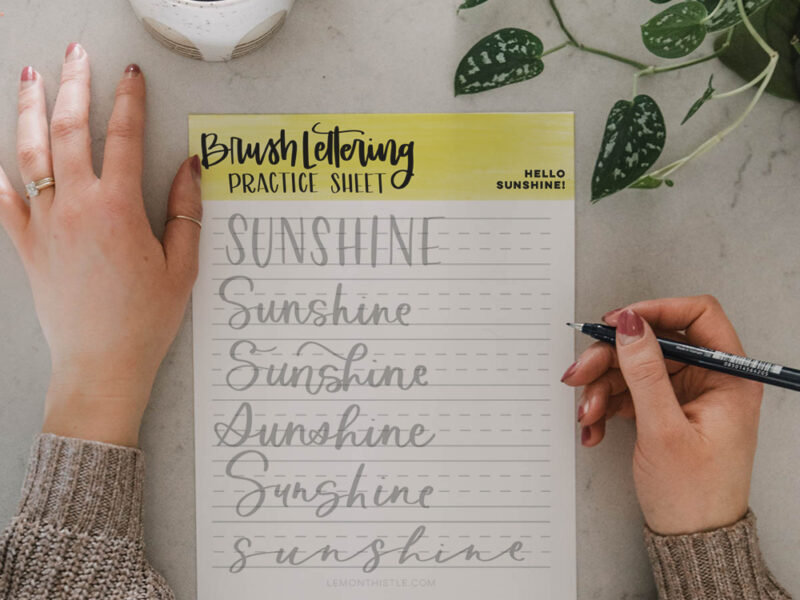 Brush Lettering
PRACTICE SHEET
HELLO
SUNSHINE!
SUNSHINE
Sunshine
Sunshine
Sunshine
Sunshine
sunshine
LEMONTHISTLE.COM